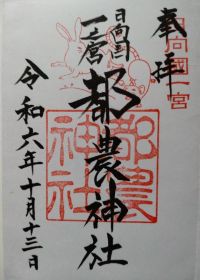 奉拝
日向国一宮
日向国
一之宮
都農神社
都農神社
令和六年十月十三日